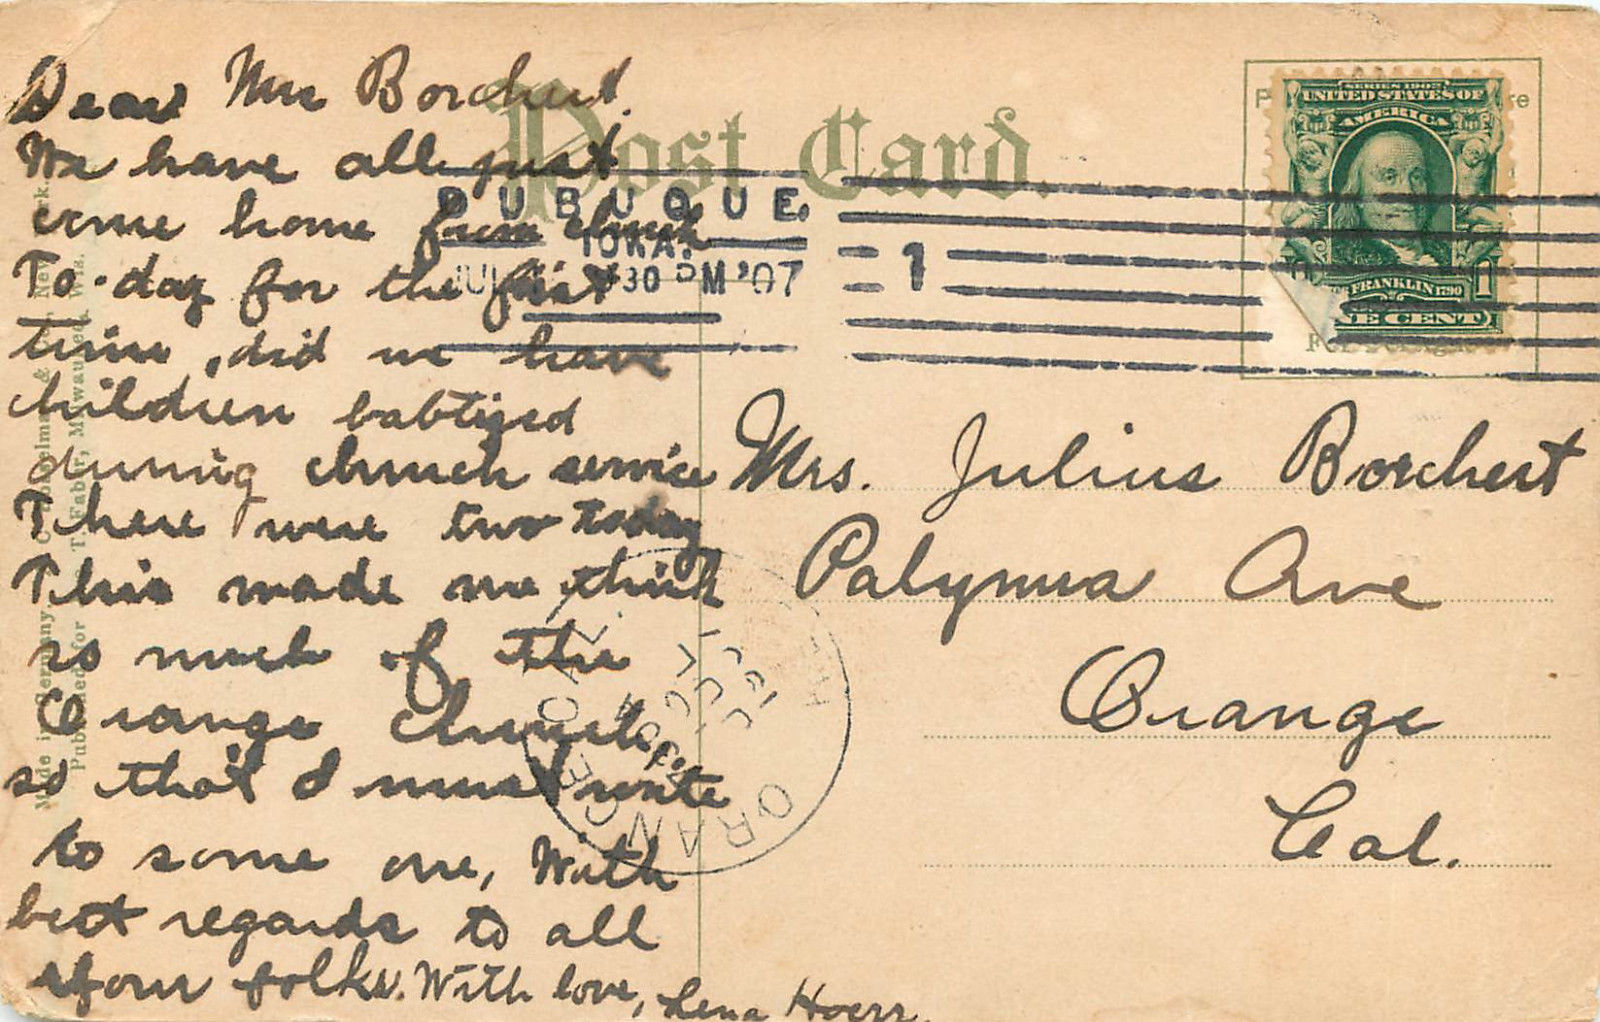 Post Card.
SERIES 1902
UNITED STATES OF
AMERICA
FRANKLIN 1790
ONE CENT
DUBUQUE.
IOWA.
30 PM '07
1
Dear Mrs Borchert.
We have all just
come home from church
To-day for the first
time, did we have
children babtized
during church service
There were two today
This made me think
so much of the
Orange Church,
so that I must write
to some one, With
best regards to all
your folks. With love, Lena Hoerr.
Mrs. Julius Borchert
Palymra Ave
Orange
Cal.
ORANGE
CAL
Made in Germany
Published for T. Faber, Milwaukee, Wis.